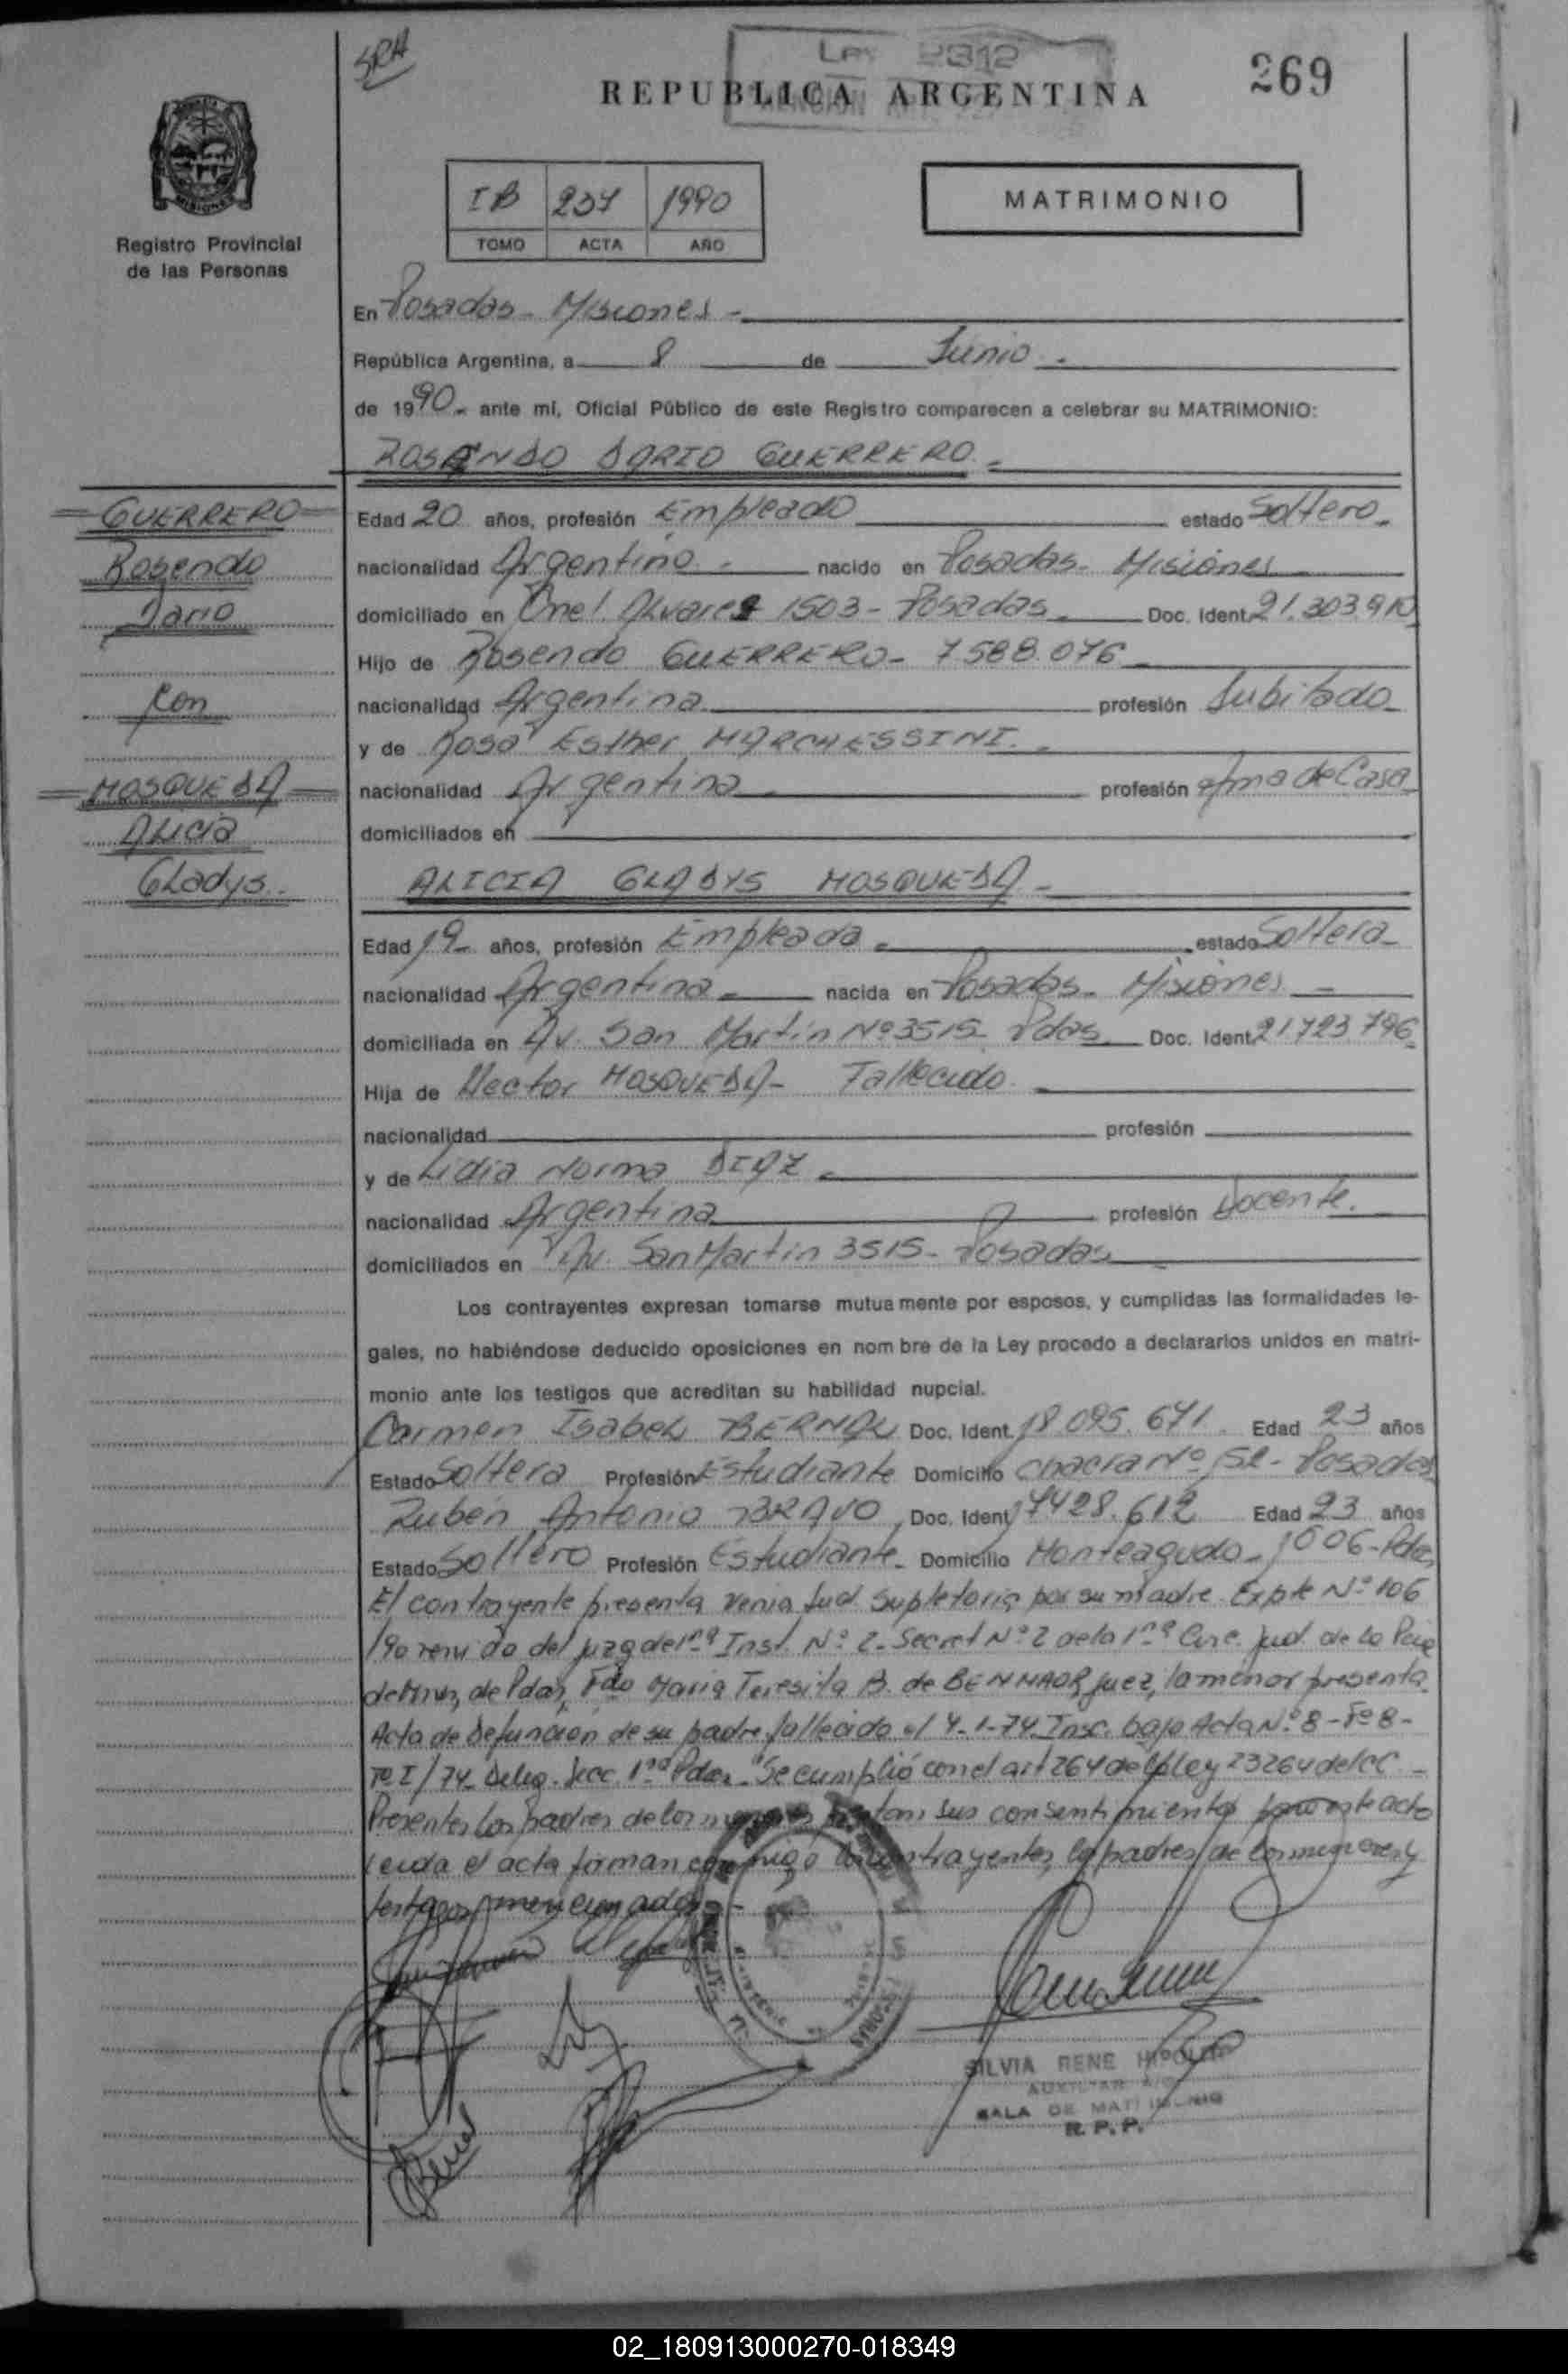 SRA
Ley 2312
269
REPUBLICA ARGENTINA
IB 237 1990
TOMO ACTA AÑO
MATRIMONIO
MISIONES
Registro Provincial
de las Personas
En Posadas - Misiones -
República Argentina, a 8 de Junio -
de 1990 - ante mi, Oficial Público de este Registro comparecen a celebrar su MATRIMONIO:
ROSENDO DARIO GUERRERO -
GUERRERO
Rosendo
Dario
con
MOSQUEDA
Alicia
Gladys
Edad 20 años, profesión Empleado estado Soltero -
nacionalidad Argentino - nacido en Posadas - Misiones
domiciliado en Cnel. Alvarez 1503 - Posadas - Doc. Ident. 21.303.910
Hijo de Rosendo GUERRERO - 7588.076 -
nacionalidad Argentina profesión Jubilado -
y de Rosa Esther MARCHESSINI -
nacionalidad Argentina - profesión Ama de Casa -
domiciliados en
ALICIA GLADYS MOSQUEDA -
Edad 19 - años, profesión Empleada - estado Soltera -
nacionalidad Argentina - nacida en Posadas - Misiones -
domiciliada en Av. San Martin Nº 3515 - Pdas. Doc. Ident. 21.723.796
Hija de Hector MOSQUEDA - Fallecido
nacionalidad profesión
y de Lidia Norma DIAZ -
nacionalidad Argentina profesión Docente.
domiciliados en Av. San Martin 3515 - Posadas
Los contrayentes expresan tomarse mutuamente por esposos, y cumplidas las formalidades le-
gales, no habiéndose deducido oposiciones en nombre de la Ley procedo a declararlos unidos en matri-
monio ante los testigos que acreditan su habilidad nupcial.
Carmen Isabel BERNAL Doc. Ident. 18.095.671 Edad 23 años
Estado Soltera Profesión Estudiante Domicilio Chacra Nº 52 - Posadas
Ruben Antonio BRAVO Doc. Ident. 17428.612 Edad 23 años
Estado Soltero Profesión Estudiante - Domicilio Monteagudo - 1006 - Pdas
El contrayente presenta venia Jud. Supletoria por su madre Expte Nº 106
/90 venido del juzg de 1ra Inst. Nº 2 - Secret Nº 2 de la 1ra Circ. Jud. de la Pcia
de Mnes, de Pdas, Fdo Maria Teresita B. de BENMAOR Juez, la menor presenta
Acta de Defuncion de su padre fallecido el 4-1-74 Insc. bajo Acta Nº 8 - Fº 8 -
Tº I/74 - Deleg. Secc. 1ra Pdas - Se cumplió con el art 264 de la ley 23264 del CC -
Presentes los padres de los menores prestan sus consentimientos para este acto
Leida el acta firman conmigo los contrayentes, los padres de los menores y
testigos mencionados -
Bernal
SILVIA RENE HIPOLITO
AUXILIAR
SALA DE MATRIMONIO
R. P. P.
02_180913000270-018349